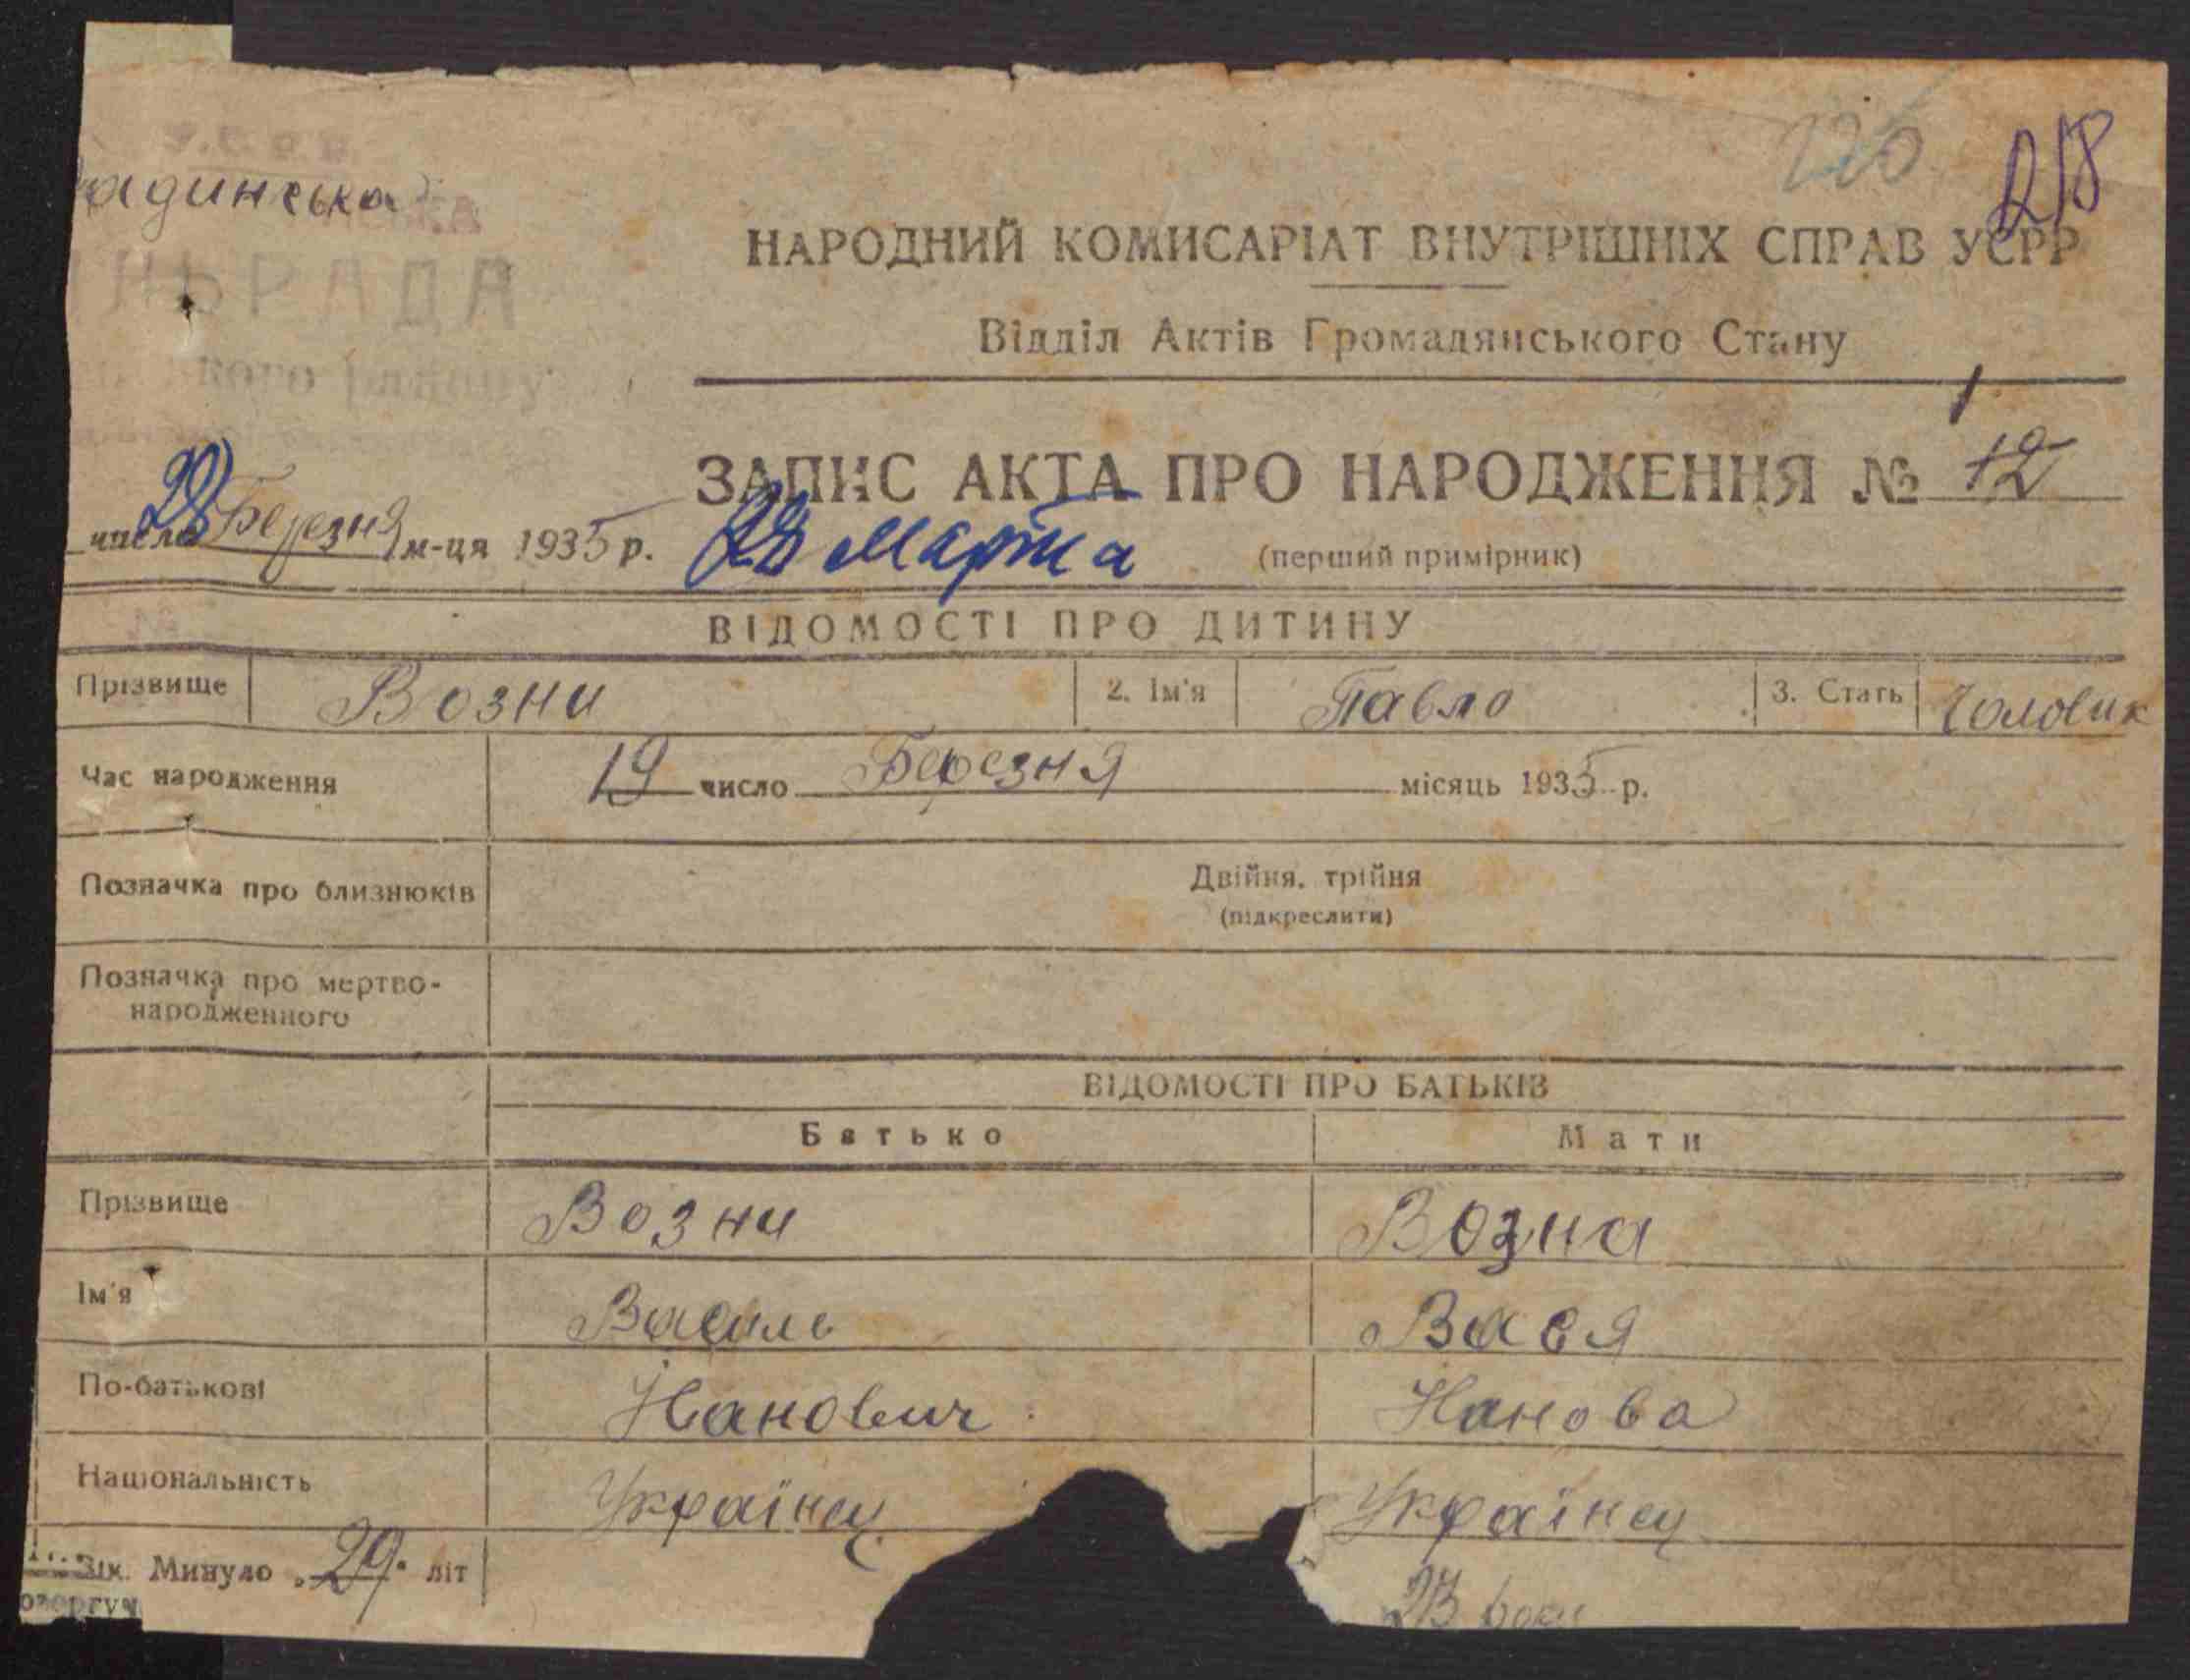 У.С.Р.Р.
адинська
РАДА
кого району
220
218
НАРОДНИЙ КОМИСАРІАТ ВНУТРІШНІХ СПРАВ УСРР
Відділ Актів Громадянського Стану
ЗАПИС АКТА ПРО НАРОДЖЕННЯ № 12
числа 28 Березня м-ця 1935 р. 28 Марта (перший примірник)
ВІДОМОСТІ ПРО ДИТИНУ
Прізвище Возни 2. Ім'я Павло 3. Стать Чоловик
Час народження 19 число Березня місяць 1935 р.
Позначка про близнюків Двійня, трійня
(підкреслити)
Позначка про мертво-
народженного
ВІДОМОСТІ ПРО БАТЬКІВ
Батько Мати
Прізвище Возни Возна
Ім'я Василь Вася
По-батькові Іванович Іванова
Національність Українец Українец
Вік. Минуло 29 літ 23 роки